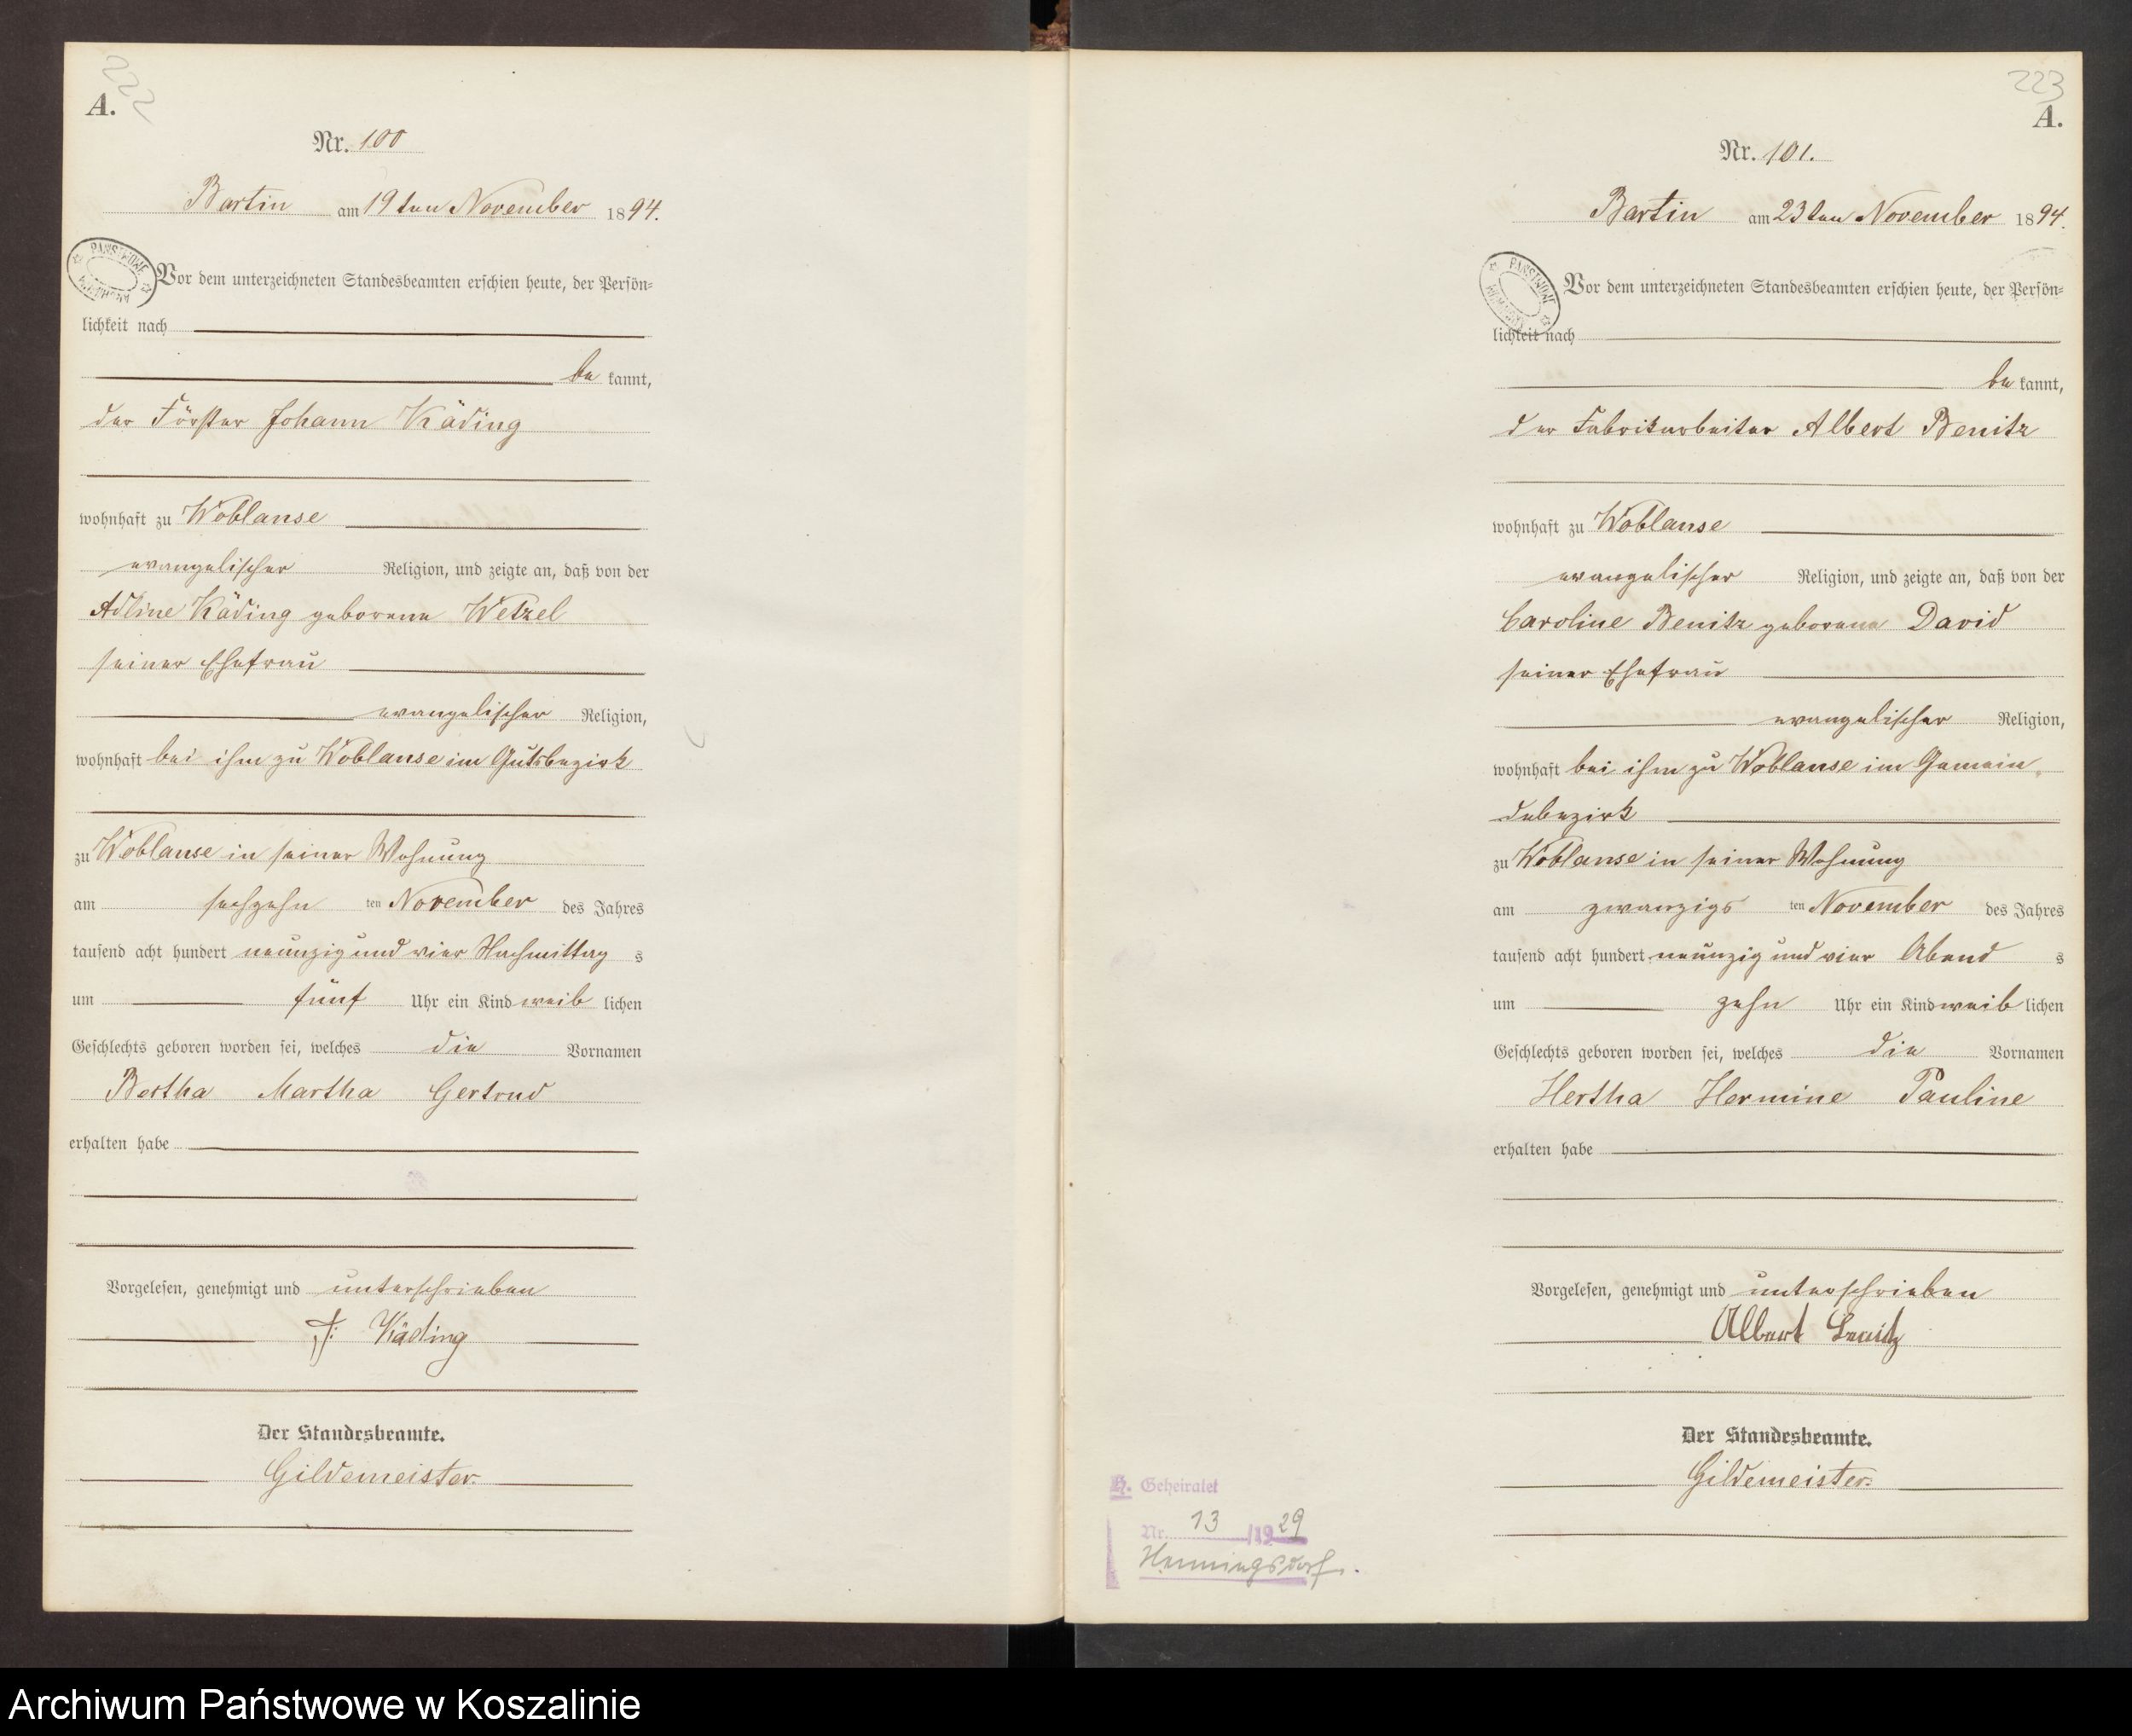 222
A.
Nr. 100
Bartin am 19ten November 1894.
PAŃSTWOWE
Vor dem unterzeichneten Standesbeamten erschien heute, der Persön-
lichkeit nach
be kannt,
der Förster Johann Käding
wohnhaft zu Woblanse
evangelischer Religion, und zeigte an, daß von der
Adline Käding geborene Wetzel
seiner Ehefrau
evangelischer Religion,
wohnhaft bei ihm zu Woblanse im Gutsbezirk
zu Woblanse in seiner Wohnung
am sechzehn ten November des Jahres
tausend acht hundert neunzig und vier Nachmittag s
um fünf Uhr ein Kind weib lichen
Geschlechts geboren worden sei, welches die Vornamen
Bertha Martha Gertrud
erhalten habe
Vorgelesen, genehmigt und unterschrieben
J: Käding
Der Standesbeamte.
Gildemeister.
223
A.
Nr. 101.
Bartin am 23ten November 1894.
PAŃSTWOWE
Vor dem unterzeichneten Standesbeamten erschien heute, der Persön-
lichkeit nach
be kannt,
der Fabrikarbeiter Albert Benitz
wohnhaft zu Woblanse
evangelischer Religion, und zeigte an, daß von der
Caroline Benitz geborene David
seiner Ehefrau
evangelischer Religion,
wohnhaft bei ihm zu Woblanse im Gemein
debezirk
zu Woblanse in seiner Wohnung
am zwanzigs ten November des Jahres
tausend acht hundert neunzig und vier Abend s
um zehn Uhr ein Kind weib lichen
Geschlechts geboren worden sei, welches die Vornamen
Hertha Hermine Pauline
erhalten habe
Vorgelesen, genehmigt und unterschrieben
Albert Benitz
Der Standesbeamte.
Gildemeister.
H. Geheiratet
Nr. 13 /1929
Henningsdorf.
Archiwum Państwowe w Koszalinie